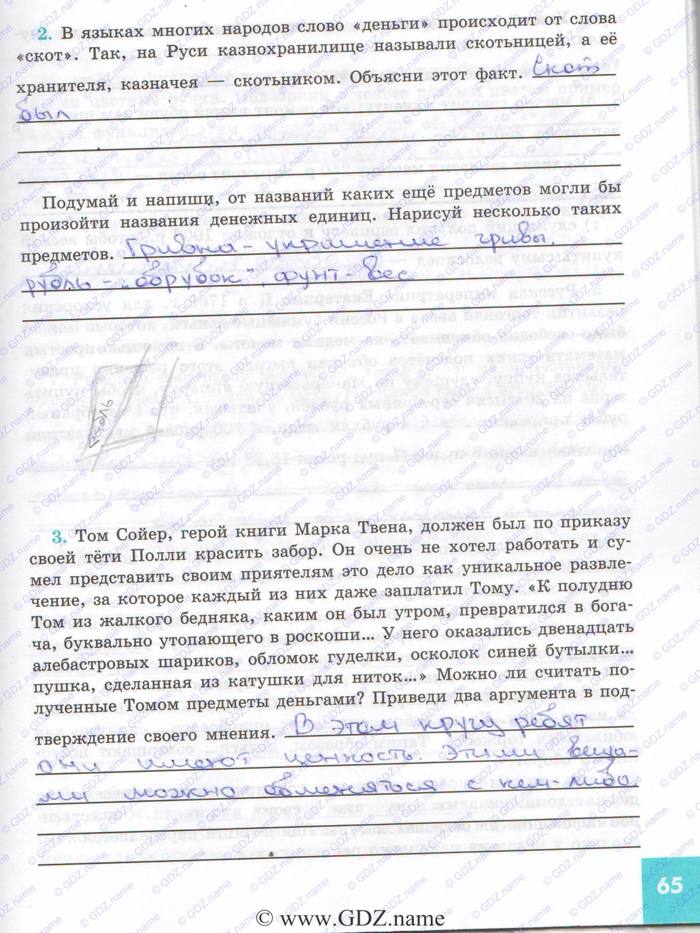 2. В языках многих народов слово «деньги» происходит от слова
«скот». Так, на Руси казнохранилище называли скотьницей, а её
хранителя, казначея — скотьником. Объясни этот факт. Скот
был
Подумай и напиши, от названий каких ещё предметов могли бы
произойти названия денежных единиц. Нарисуй несколько таких
предметов. Гривна - украшение гривы,
рубль - "обрубок", фунт - вес
рубль
3. Том Сойер, герой книги Марка Твена, должен был по приказу
своей тёти Полли красить забор. Он очень не хотел работать и су-
мел представить своим приятелям это дело как уникальное развле-
чение, за которое каждый из них даже заплатил Тому. «К полудню
Том из жалкого бедняка, каким он был утром, превратился в бога-
ча, буквально утопающего в роскоши... У него оказались двенадцать
алебастровых шариков, обломок гуделки, осколок синей бутылки...
пушка, сделанная из катушки для ниток...» Можно ли считать по-
лученные Томом предметы деньгами? Приведи два аргумента в под-
тверждение своего мнения. В этом кругу ребят
они имеют ценность. Этими веща-
ми можно обменяться с кем-либо
65
© www.GDZ.name